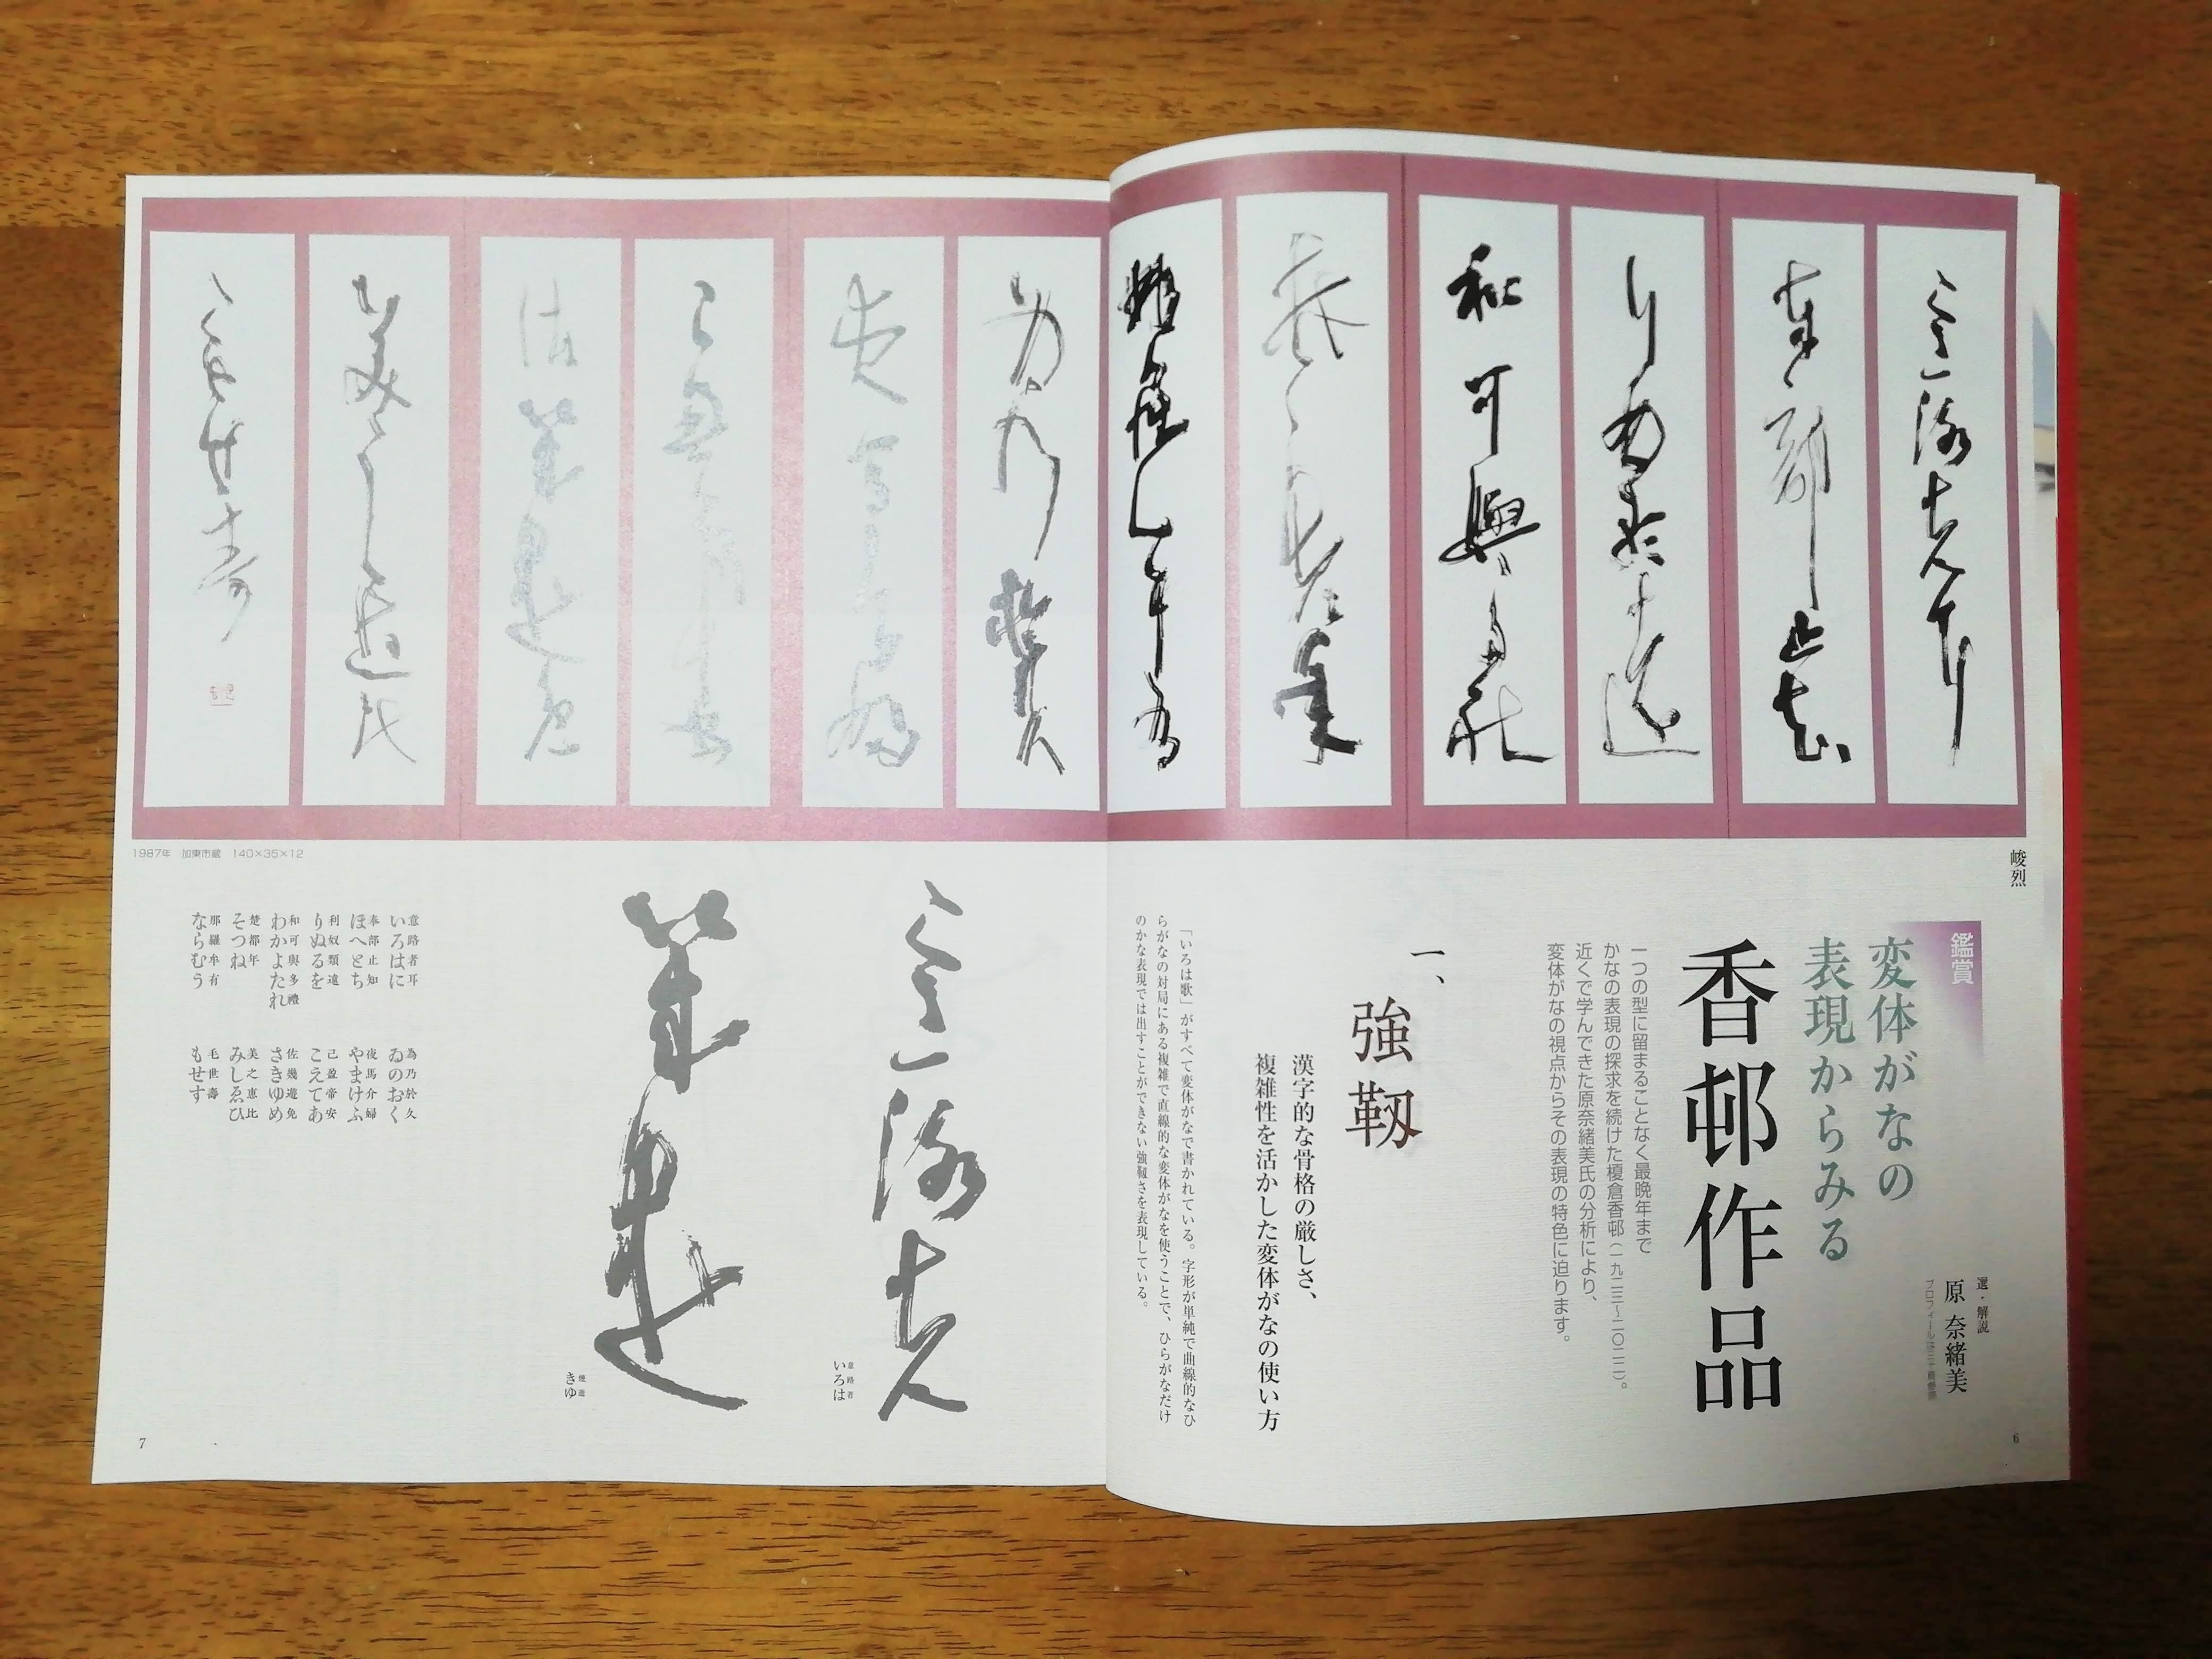 峻烈
鑑賞
変体がなの
表現からみる
選・解説
原 奈緒美
香邨作品
一つの型に留まることなく最晩年まで
かなの表現の探求を続けた榎倉香邨（一九二三〜二〇二二）。
近くで学んできた原奈緒美氏の分析により、
変体がなの視点からその表現の特色に迫ります。
一、
強靱
漢字的な骨格の厳しさ、
複雑性を活かした変体がなの使い方
「いろは歌」がすべて変体がなで書かれている。字形が単純で曲線的なひ
らがなの対局にある複雑で直線的な変体がなを使うことで、ひらがなだけ
のかな表現では出すことができない強靱さを表現している。
6
1987年 加東市蔵 140×35×12
意路者
いろは
幾遊
きゆ
意路者耳
いろはに
奉部止知
ほへとち
利奴類遠
りぬるを
和可與多禮
わかよたれ
楚都年
そつね
那羅牟有
ならむう
為乃於久
ゐのおく
夜馬介婦
やまけふ
己盈帝安
こえてあ
佐幾遊免
さきゆめ
美之恵比
みしゑひ
毛世壽
もせす
7